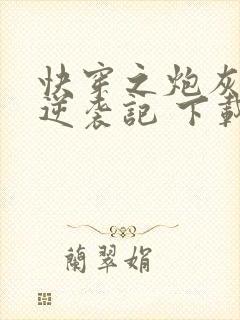 快穿之炮灰
逆袭記 下載
蘭翠娟